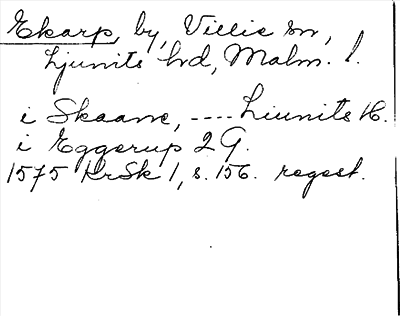 Ekarp, by, Villie sn,
Ljunits hd, Malm. l.
i Skaane, ---- Liunits H.
i Eggerup 2 G.
1575 KrSk 1, s. 156. regest.